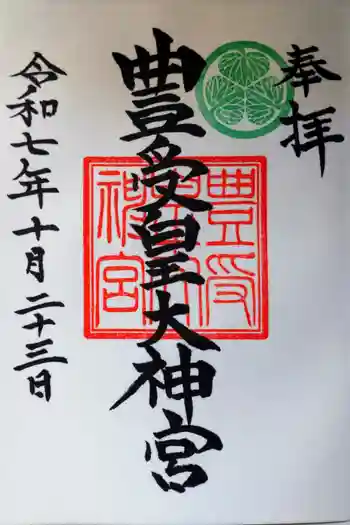 奉拝
豊受皇大神宮
令和七年十月二十三日